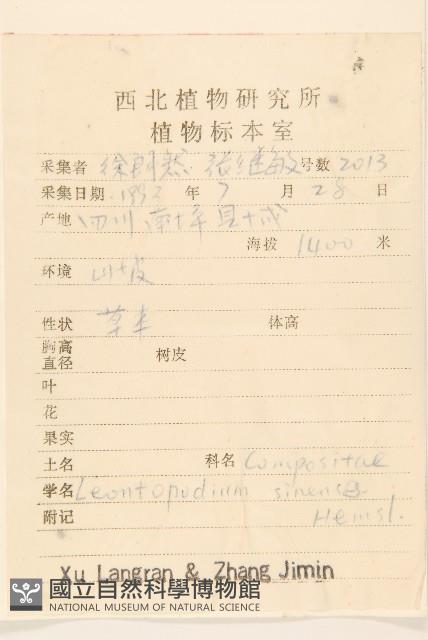 西北植物研究所
植物标本室
采集者 徐朗然 张继敏 号数 2013
采集日期 1992 年 7 月 28 日
产地 四川 南坪县
海拔 1400 米
环境 山坡
性状 草本 体高
胸高直径 树皮
叶
花
果实
土名 科名 Compositae
学名 Leontopodium sinense
附记 Hemsl.
Xu Langran & Zhang Jimin
國立自然科學博物館
NATIONAL MUSEUM OF NATURAL SCIENCE